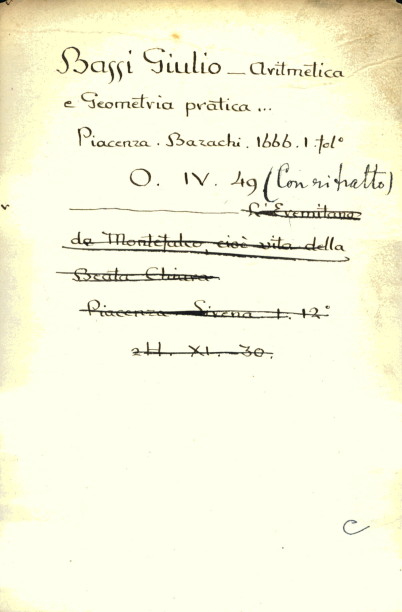 Bassi Giulio _ Aritmetica
e Geometria pratica ...
Piacenza . Bazachi . 1666 . 1 . fol°
O. IV. 49 (Con ritratto)
L'Eremitana
da Montefalco, cioè vita della
Beata Chiara
Piacenza Sirena 1. 12°
2H. XI. 30.
C